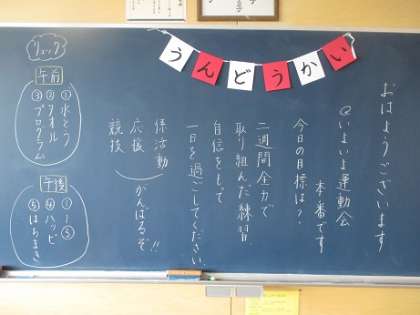 うんどうかい
おはようございます
いよいよ運動会
本番です
今日の目標は?
二週間全力で
取り組んだ練習
自信をもって
一日を過ごしてください。
係活動
応援
競技
がんばるぞ!!
リュック
午前
①水とう
②タオル
③プログラム
午後
①〜③
④ハッピ
⑤はちまき